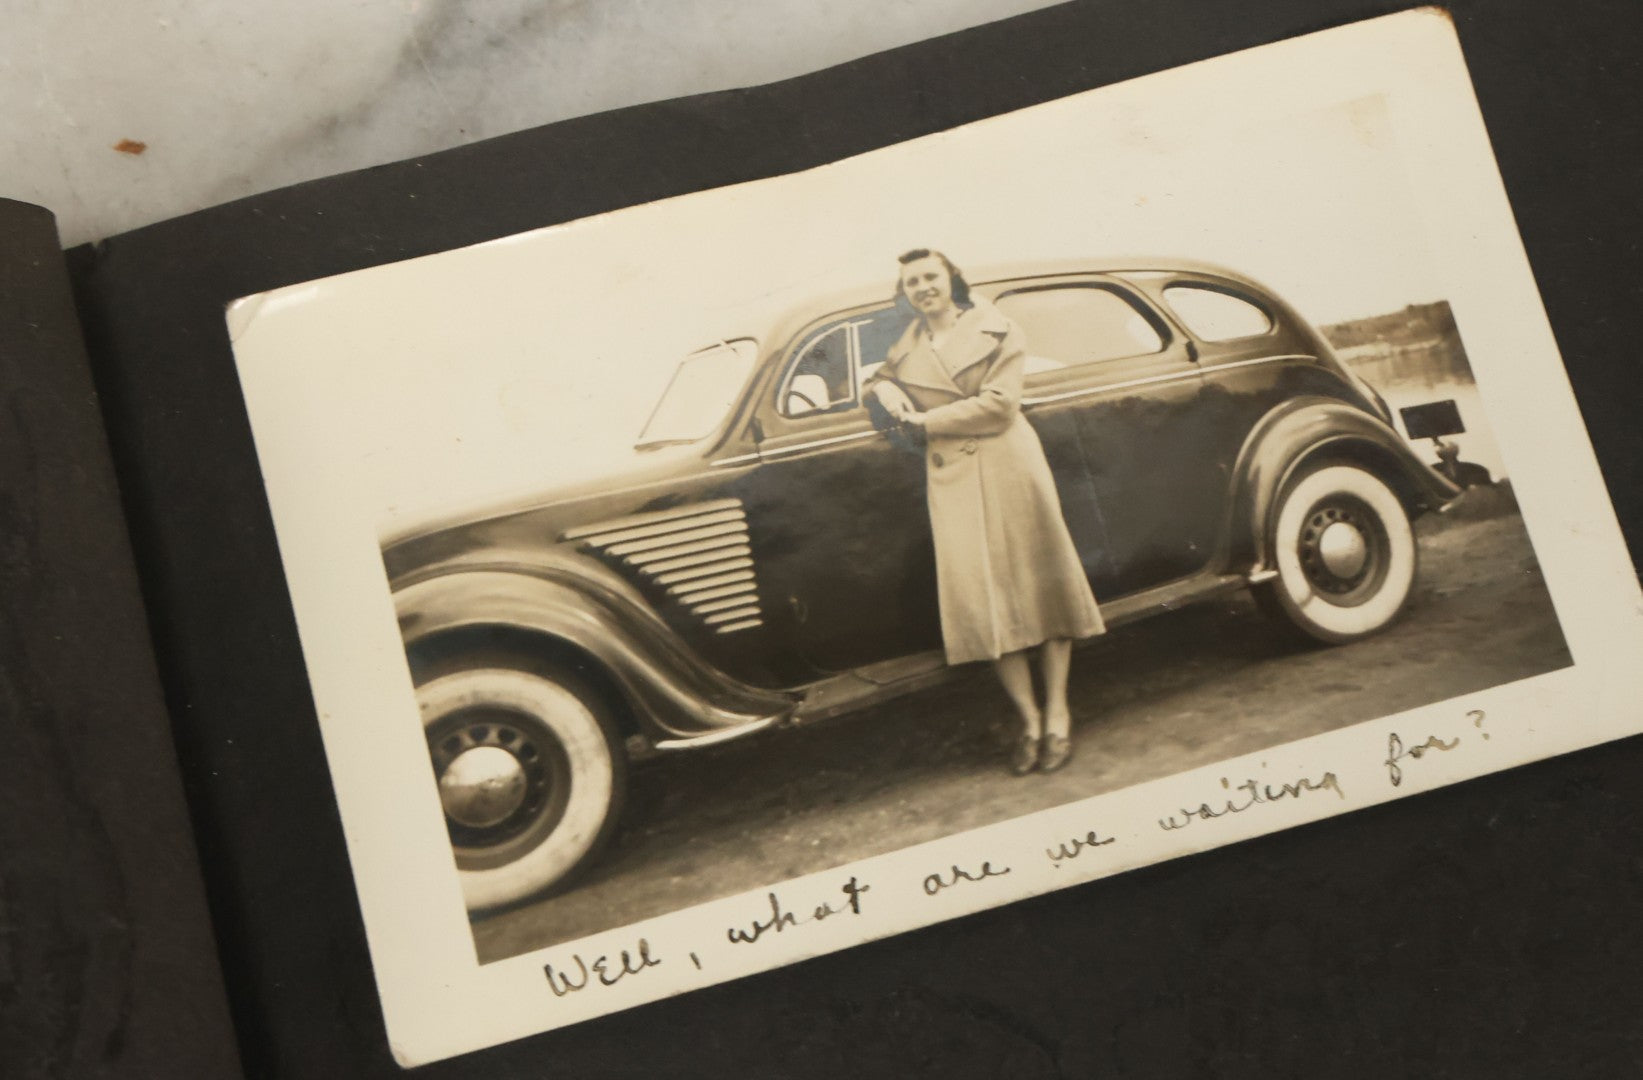 Well, what are we waiting for?